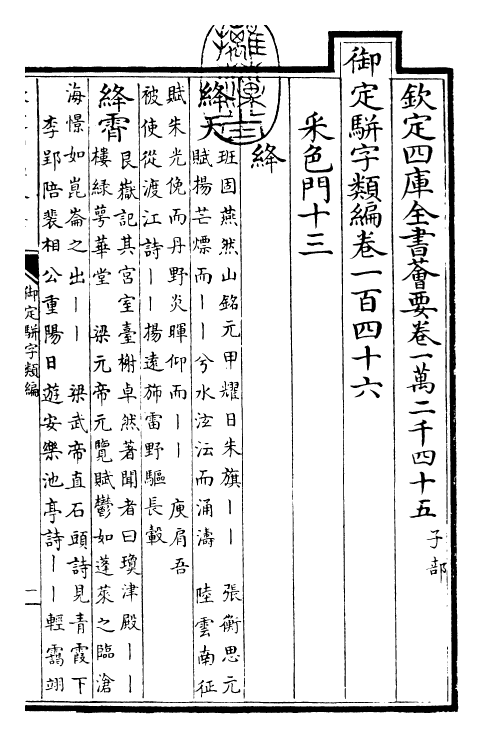 欽定四庫全書薈要卷一萬二千四十五 子部
御定駢字類編卷一百四十六
采色門十三
絳
絳天
班固燕然山銘元甲耀日朱旗丨丨 張衡思元
賦揚芒熛而丨丨兮水泫沄而涌濤 陸雲南征
賦朱光俛而丹野炎暉仰而丨丨 庾肩吾
被使從渡江詩丨丨揚遠斾雷野驅長轂
絳霄
艮嶽記其宮室臺榭卓然著聞者曰瓊津殿丨丨
樓綠萼華堂 梁元帝元覽賦鬱如蓬萊之臨滄
海憬如崑崙之出丨丨 梁武帝直石頭詩見青霞下
李郢陪裴相公重陽日遊安樂池亭詩丨丨輕靄翊
御定駢字類編
一